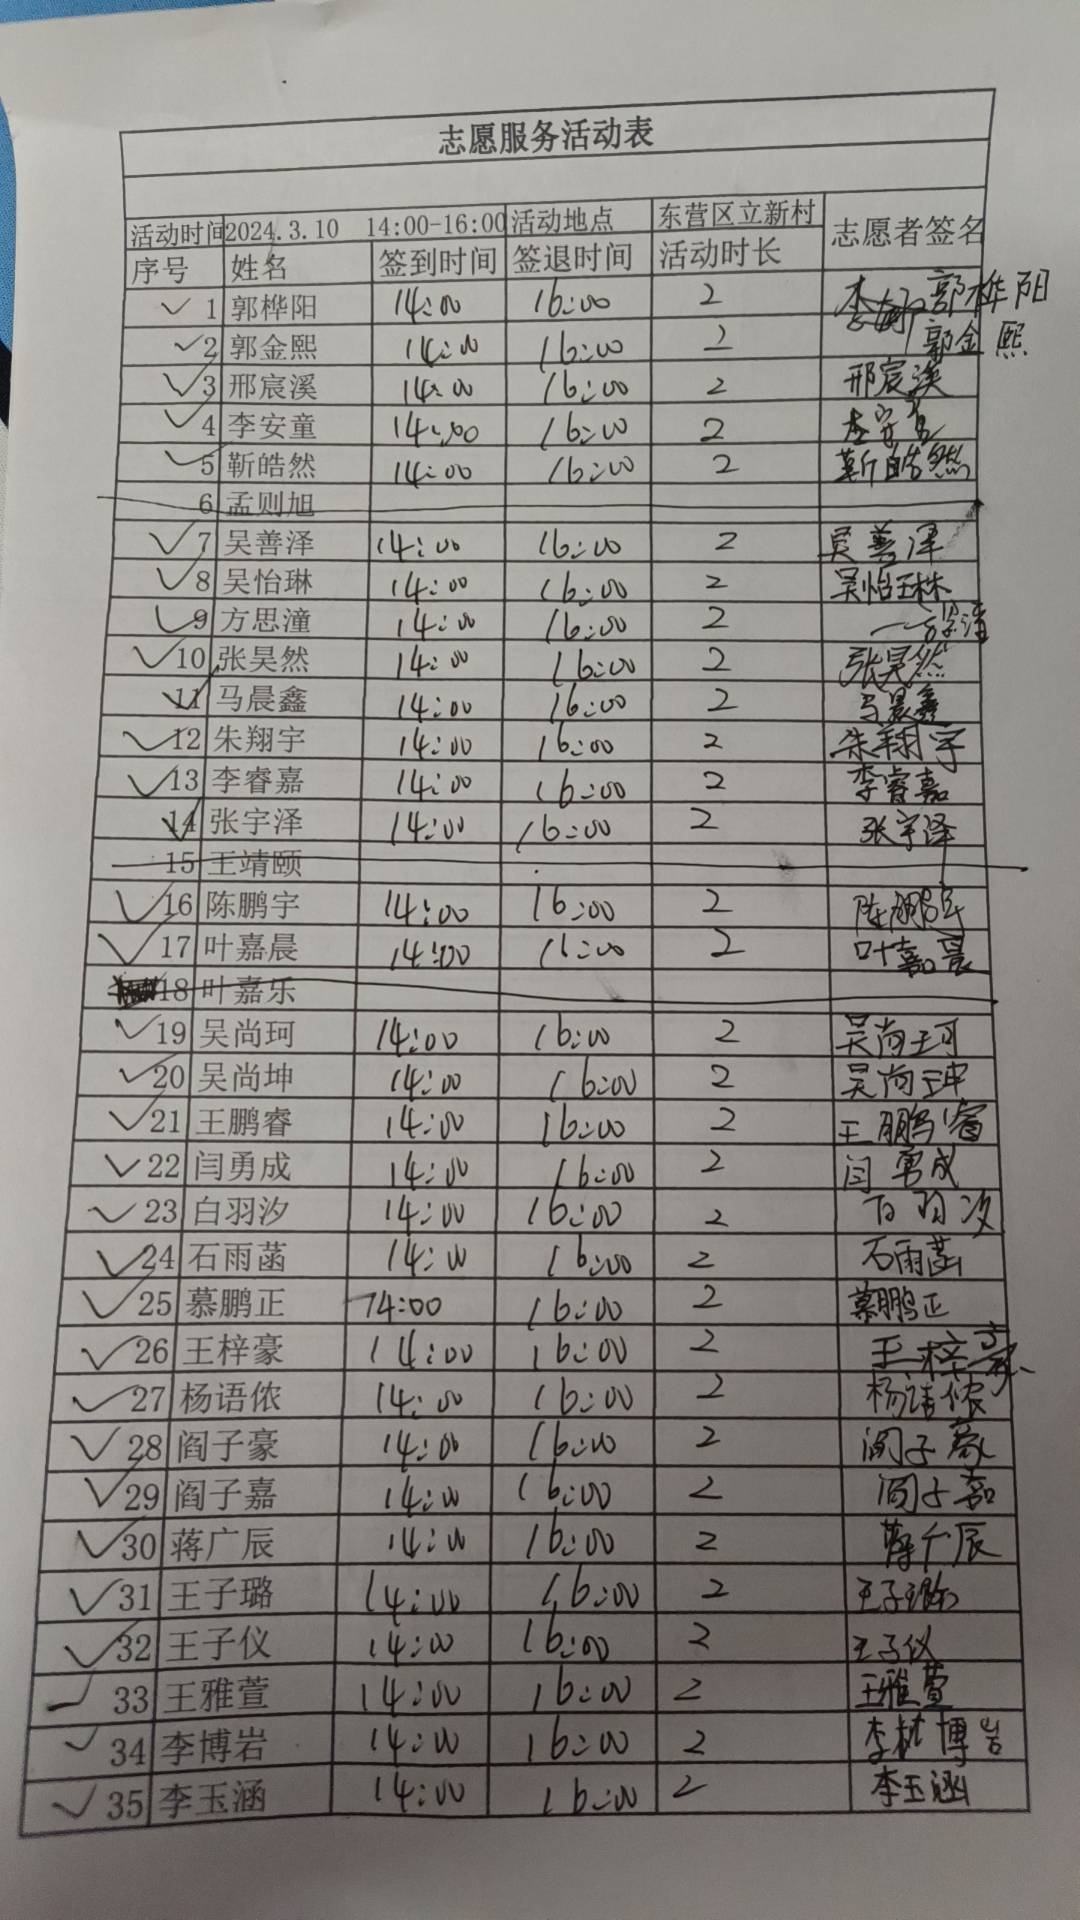 志愿服务活动表
活动时间 2024.3.10 14:00-16:00 活动地点 东营区立新村 志愿者签名
序号 姓名 签到时间 签退时间 活动时长
1 郭桦阳 14:00 16:00 2 郭桦阳
2 郭金熙 14:00 16:00 2 郭金熙
3 邢宸溪 14:00 16:00 2 邢宸溪
4 李安童 14:00 16:00 2 李安童
5 靳皓然 14:00 16:00 2 靳皓然
6 孟则旭
7 吴善泽 14:00 16:00 2 吴善泽
8 吴怡琳 14:00 16:00 2 吴怡琳
9 方思潼 14:00 16:00 2
10 张昊然 14:00 16:00 2 张昊然
11 马晨鑫 14:00 16:00 2 马晨鑫
12 朱翔宇 14:00 16:00 2 朱翔宇
13 李睿嘉 14:00 16:00 2 李睿嘉
14 张宇泽 14:00 16:00 2 张宇泽
15 王靖颐
16 陈鹏宇 14:00 16:00 2 陈鹏宇
17 叶嘉晨 14:00 16:00 2 叶嘉晨
18 叶嘉乐
19 吴尚珂 14:00 16:00 2 吴尚珂
20 吴尚坤 14:00 16:00 2 吴尚坤
21 王鹏睿 14:00 16:00 2 王鹏睿
22 闫勇成 14:00 16:00 2 闫勇成
23 白羽汐 14:00 16:00 2 白羽汐
24 石雨菡 14:00 16:00 2 石雨菡
25 慕鹏正 14:00 16:00 2 慕鹏正
26 王梓豪 14:00 16:00 2 王梓豪
27 杨语侬 14:00 16:00 2 杨语侬
28 阎子豪 14:00 16:00 2 阎子豪
29 阎子嘉 14:00 16:00 2 阎子嘉
30 蒋广辰 14:00 16:00 2 蒋广辰
31 王子璐 14:00 16:00 2 王子璐
32 王子仪 14:00 16:00 2 王子仪
33 王雅萱 14:00 16:00 2 王雅萱
34 李博岩 14:00 16:00 2 李博岩
35 李玉涵 14:00 16:00 2 李玉涵